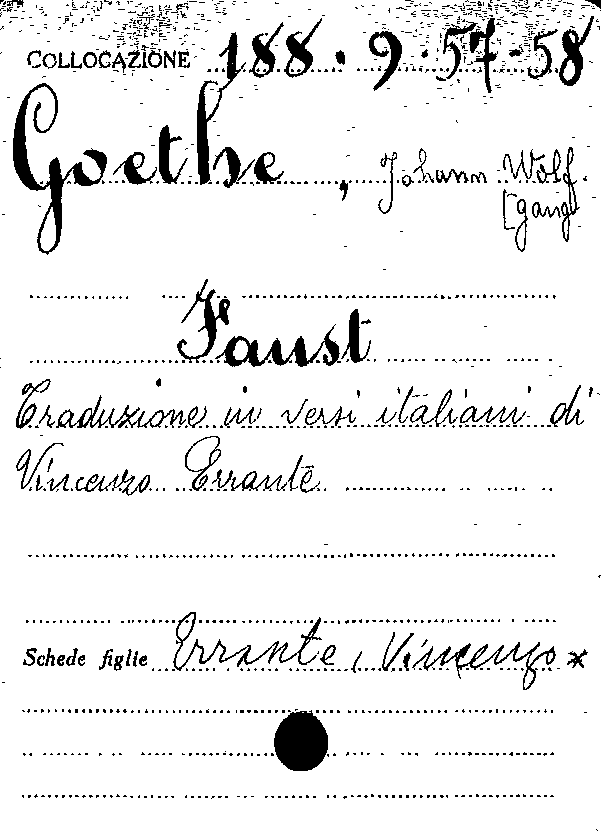 COLLOCAZIONE 188.9.57-58
Goethe, Johann Wolf.
[gang
Faust
Traduzione in versi italiani di
Vincenzo Errante
Schede figlie Errante, Vincenzo x